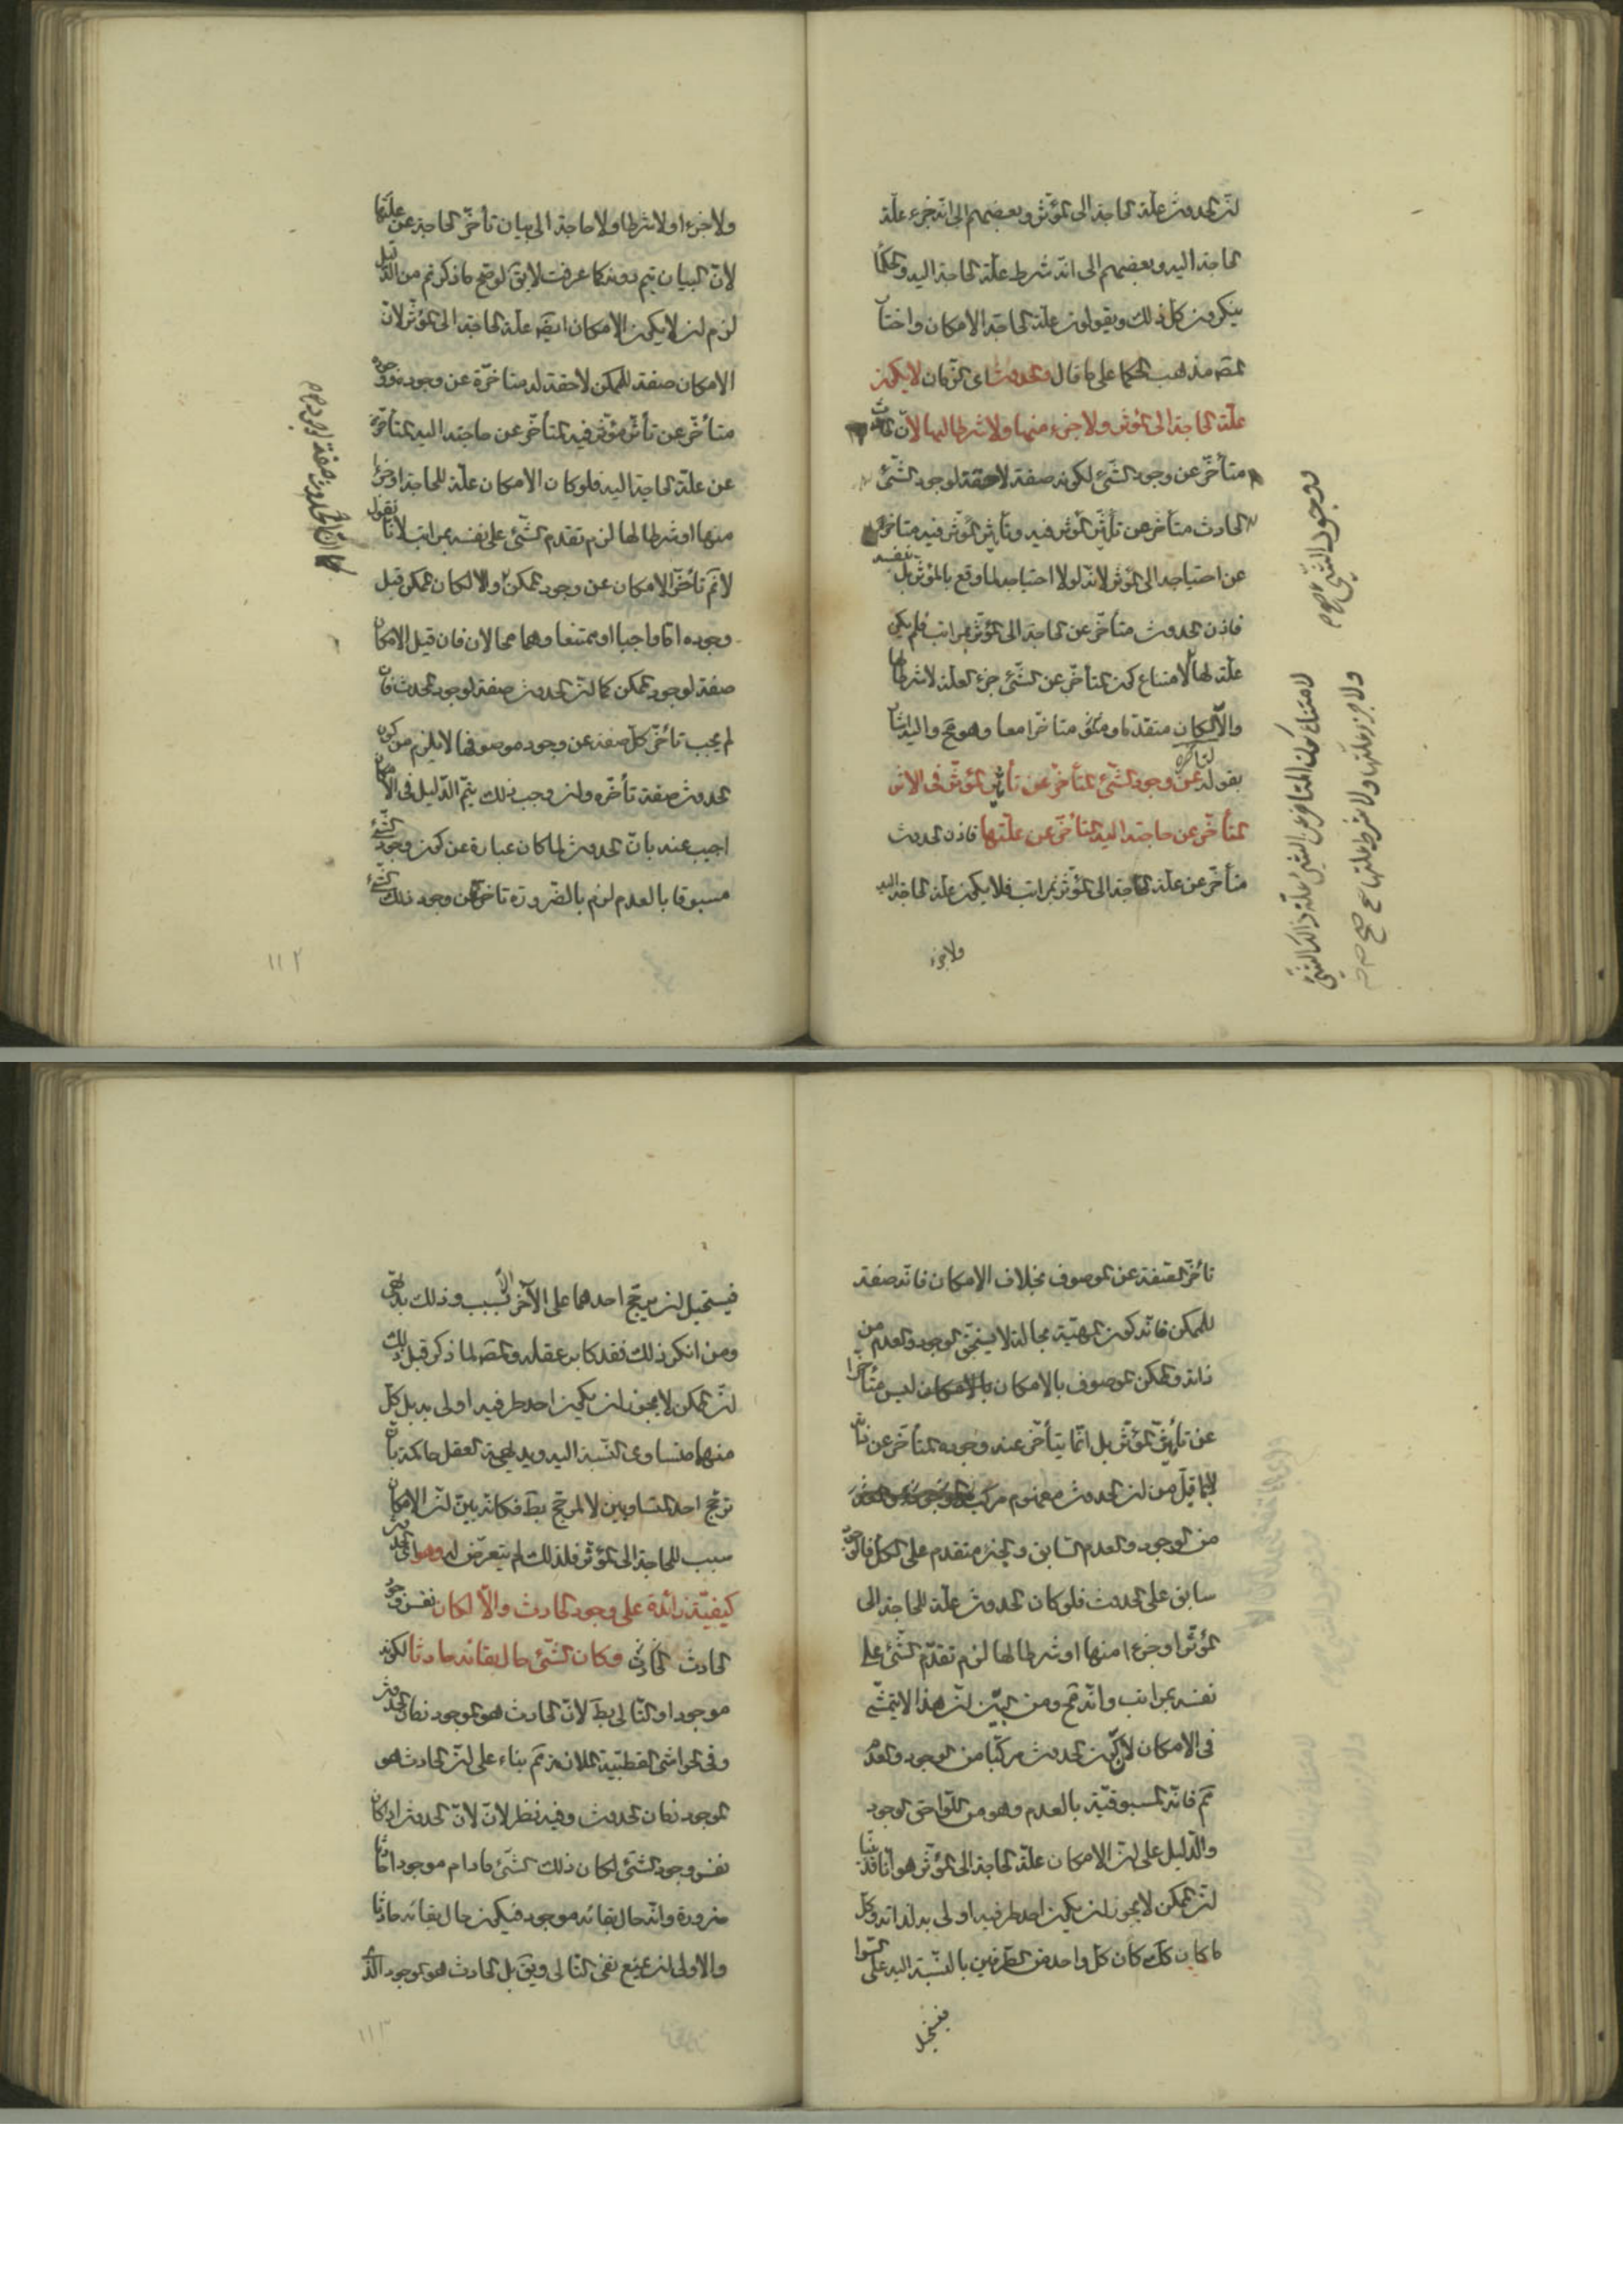 ان الحدوث علة الحاجة الى المؤثر وبعضهم الى انه جزء علة
الحاجة اليه وبعضهم الى انه شرط علة الحاجة اليه والحكما
ينكرون كل ذلك ويقولون علة الحاجة الامكان واختار
المص مذهب الحكما على ما قال والحدوث اى الزمان لا يكون
علة الحاجة الى المؤثر ولا جزء منها ولا شرطا لها لان الحدوث
متأخر عن وجود الشئ لكونه صفة لاحقة لوجود الشئ
الحادث متأخر عن تأثير المؤثر فيه وتأثير المؤثر فيه متأخر
عن احتياجه الى المؤثر لانه لولا احتياجه لما وقع بالمؤثر بل بنفسه
فاذن الحدوث متأخر عن الحاجة الى المؤثر بمراتب فلم يكن
علة لها لامتناع كون المتأخر عن الشئ جزء العلة لا شرطا لها
والا لكان متقدما ومتأخرا معا وهو مح واليه اشار
بقوله لتأخره عن وجود الشئ المتأخر عن تأثير المؤثر فى الاثر
المتأخر عن حاجته اليه المتأخر عن علتها فاذن الحدوث
متأخر عن علة الحاجة الى المؤثر بمراتب فلا يكون علة الحاجة اليه
ولا جزء
ووجود الشئ
لامتناع كون المتأخر عن الشئ علة ذلك الشئ
ولا جزء علتها ولا شرط علتها صح
ولا جزءا ولا شرطا ولا حاجة الى بيان تأخر الحاجة عن علتها
لان البيان يتم دونه كما عرفت لا يق لو صح ما ذكرتم من الدليل
لزم ان لا يكون الامكان ايضا علة الحاجة الى المؤثر لان
الامكان صفة للممكن لاحقة له متأخرة عن وجوده ووجوده
متأخر عن تأثير مؤثر فيه المتأخر عن حاجته اليه المتأخرة
عن علة الحاجة اليه فلو كان الامكان علة للحاجة او جزءا
منها او شرطا لها لزم تقدم الشئ على نفسه بمراتب لانا نقول
لا نم تأخر الامكان عن وجود الممكن والا لكان الممكن قبل
وجوده اما واجبا او ممتنعا وهما محالان فان قيل الامكان
صفة لوجود الممكن كما ان الحدوث صفة لوجود الحدث فان
لم يجب تأخر كل صفة عن وجود موصوفها لا يلزم من كون
الحدوث صفة تأخره وان وجب ذلك يتم الدليل فى الامكان
اجيب عنه بان الحدوث لما كان عبارة عن كون وجود الشئ
مسبوقا بالعدم لزم بالضرورة تأخره عن وجود ذلك الشئ
كما ان الحدوث صفة لوجود
١١٢
تأخر الصفة عن الموصوف بخلاف الامكان فانه صفة
للممكن فانه كون المهية بحالة لا يستحق الوجود والعدم من
ذاته والممكن الموصوف بالامكان ليس متأخرا
عن تأثير المؤثر بل انما يتأخر عنه وجوده المتأخر عن
لما قيل من ان الحدوث مفهوم مركب
من الوجود والعدم السابق والجزء متقدم على الكل فالوجود
سابق على الحدوث فلو كان الحدوث علة للحاجة الى
المؤثر او جزءا منها او شرطا لها لزم تقدم الشئ على
نفسه بمراتب وانه مح ومن البين ان هذا لا يتمشى
فى الامكان لان كون الحدوث مركبا من الوجود والعدم
مم فانه المسبوقية بالعدم وهو من اللواحق الوجود
والدليل على ان الامكان علة الحاجة الى المؤثر هو انا قد بينا
ان الممكن لا يجوز ان يكون احد طرفيه اولى به لذاته وكل
ما كان كك كان كل واحد من الطرفين بالنسبة اليه على السوا
فيستحيل
فيستحيل ان يرجح احدهما على الآخر الا بسبب وذلك بديهى
ومن انكر ذلك فقد كابر عقله والمص لما ذكر قبل ذلك
ان الممكن لا يجوز ان يكون احد طرفيه اولى به بل كل
منهما متساوى النسبة اليه وبديهية العقل حاكمة بان
ترجح احد المتساويين لا لمرجح بط فكانه بين ان الامكان
سبب للحاجة الى المؤثر فلذلك لم يتعرض له وهو اى الحدوث
كيفية زائدة على وجود الحادث والا لكان نفس وجود
الحادث فكان الشئ حال بقائه حادثا لكونه
موجودا والتالى بط لان الحادث هو الموجود زمان الحدوث
وفى الحواشى القطبية الملازمة مم بناء على ان الحادث هو
الموجود زمان الحدوث وفيه نظر لان الحدوث اذا كان
نفس وجود الشئ لكان ذلك الشئ ما دام موجودا حادثا
ضرورة وانه حال بقائه موجود فيكون حال بقائه حادثا
والاولى ان يمنع نفى التالى ويق بل الحادث هو الموجود الذى
١١٣